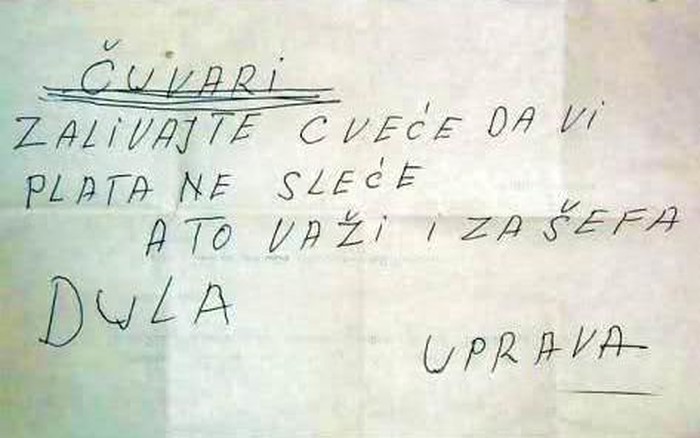 ČUVARI
ZALIVAJTE CVEĆE DA VI
PLATA NE SLEĆE
A TO VAŽI I ZA ŠEFA
DULA
UPRAVA